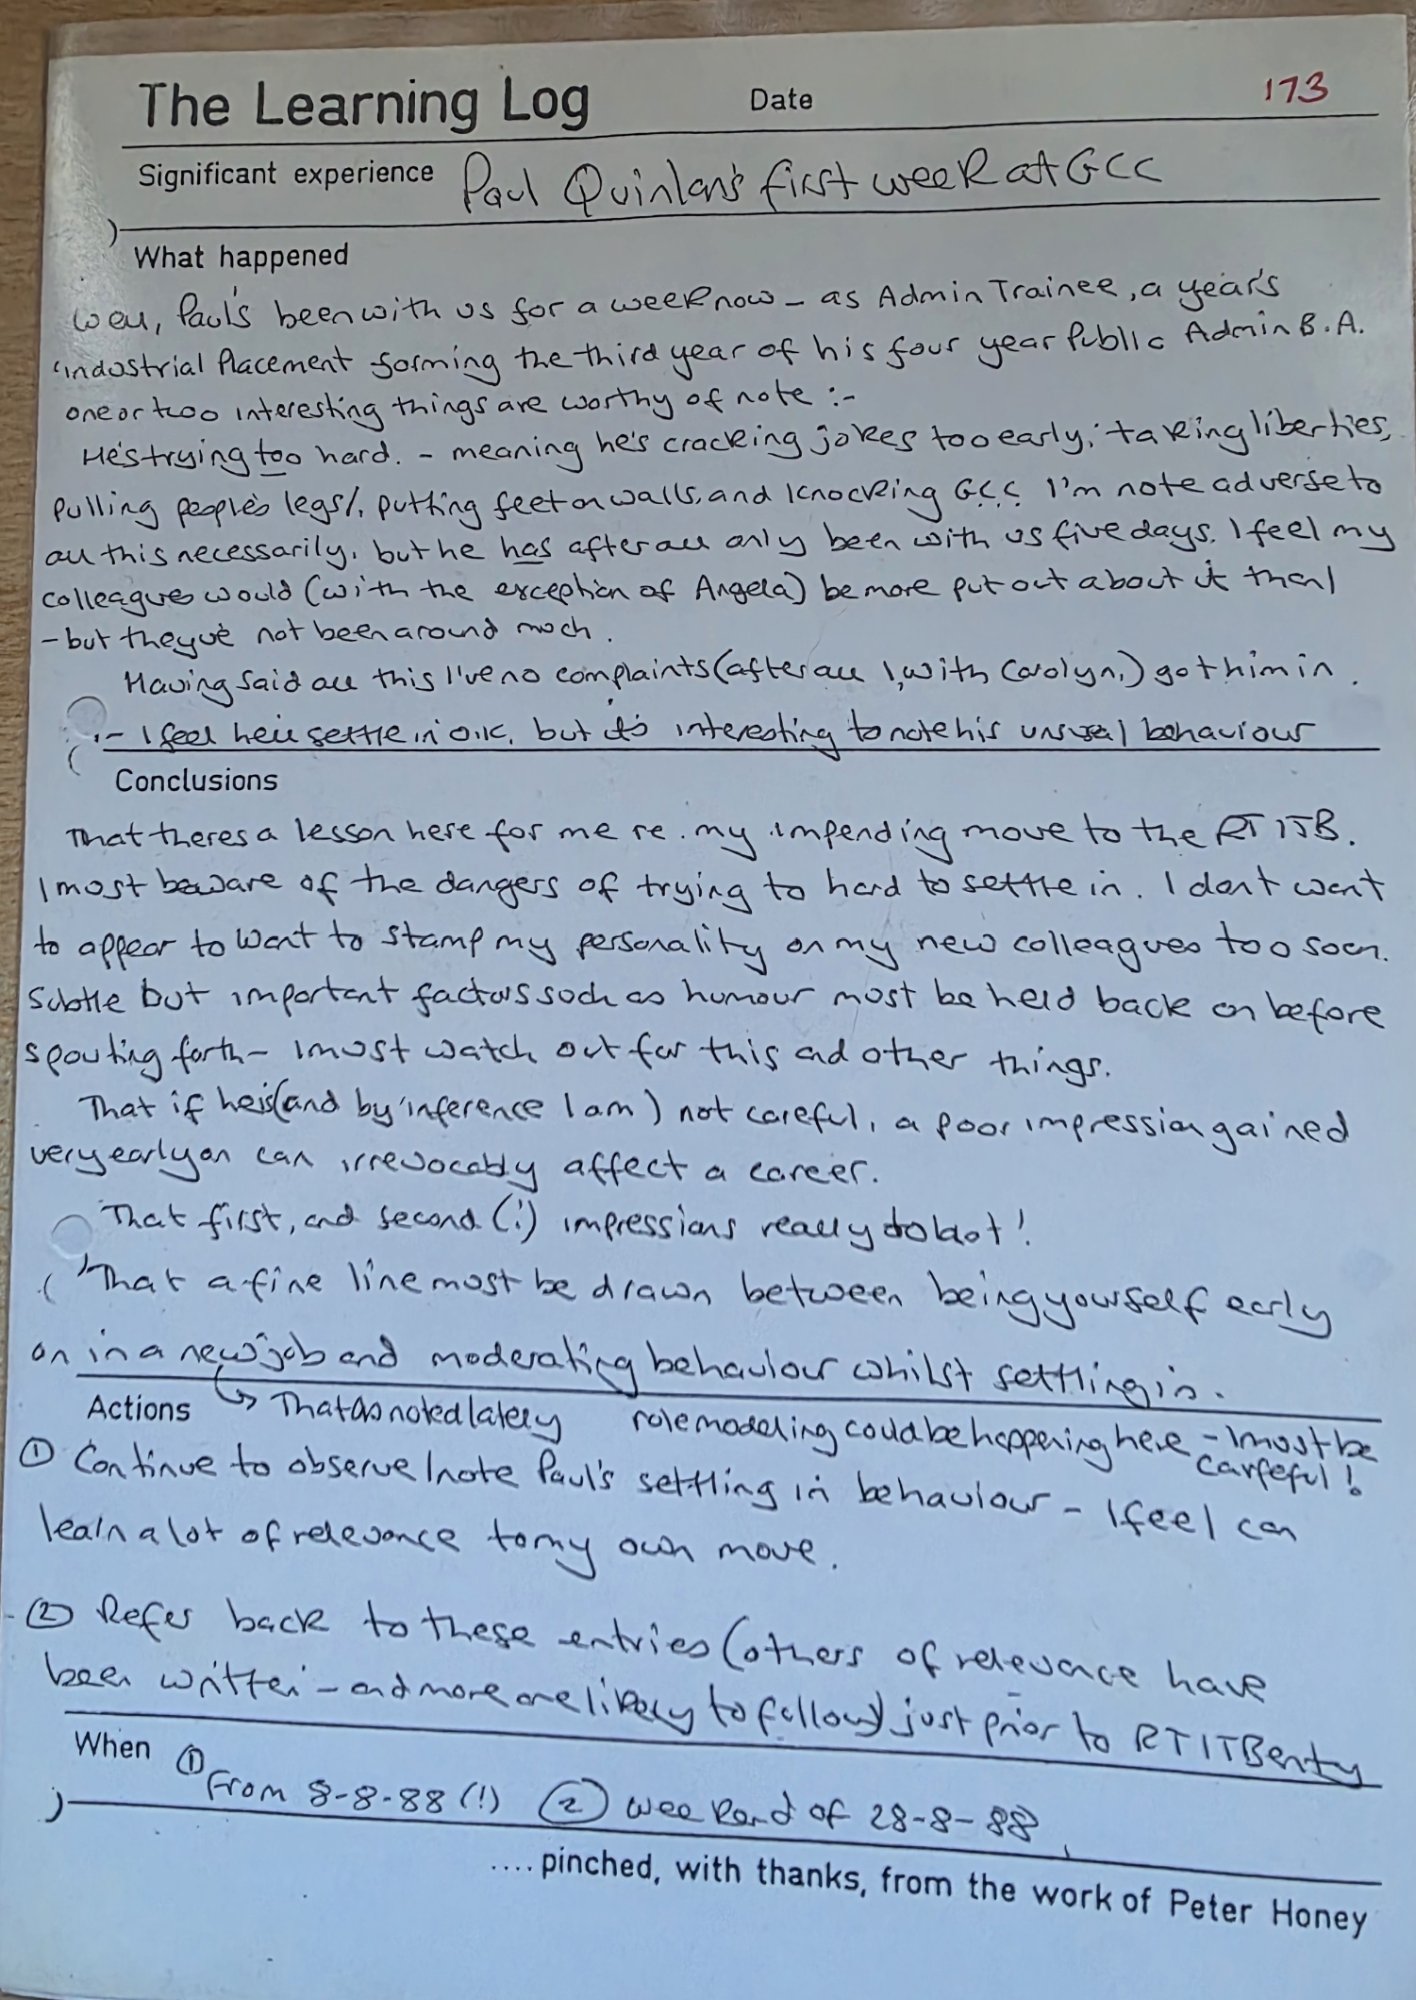 The Learning Log Date 173
Significant experience Paul Quinlan's first week at GCC
What happened
Well, Paul's been with us for a week now – as Admin Trainee, a year's
industrial Placement forming the third year of his four year Public Admin B.A.
one or two interesting things are worthy of note :-
He's trying too hard. – meaning he's cracking jokes too early, taking liberties,
pulling people's legs, putting feet on walls, and knocking GCC. I'm note adverse to
all this necessarily, but he has after all only been with us five days. I feel my
colleagues would (with the exception of Angela) be more put out about it then I
– but they've not been around much.
Having said all this I've no complaints (after all I, with Carolyn,) got him in.
– I feel he'll settle in O.K. but it's interesting to note his unusual behaviour
Conclusions
That theres a lesson here for me re. my impending move to the RTITB.
I must beware of the dangers of trying to hard to settle in. I don't want
to appear to want to stamp my personality on my new colleagues too soon.
Subtle but important factors such as humour must be held back on before
spouting forth – I must watch out for this and other things.
That if he is (and by inference I am) not careful, a poor impression gained
very early on can irrevocably affect a career.
That first, and second (!) impressions really do last!
That a fine line must be drawn between being yourself early
on in a new job and moderating behaviour whilst settling in.
Actions → That as noted lately role modeling could be happening here – I must be
carfeful!
① Continue to observe/note Paul's settling in behaviour – I feel I can
learn a lot of relevance to my own move.
② Refer back to these entries (others of relevance have
been written – and more are likely to follow) just prior to RTITB entry
When ① From 8-8-88 (!) ② weekend of 28-8-88
.... pinched, with thanks, from the work of Peter Honey